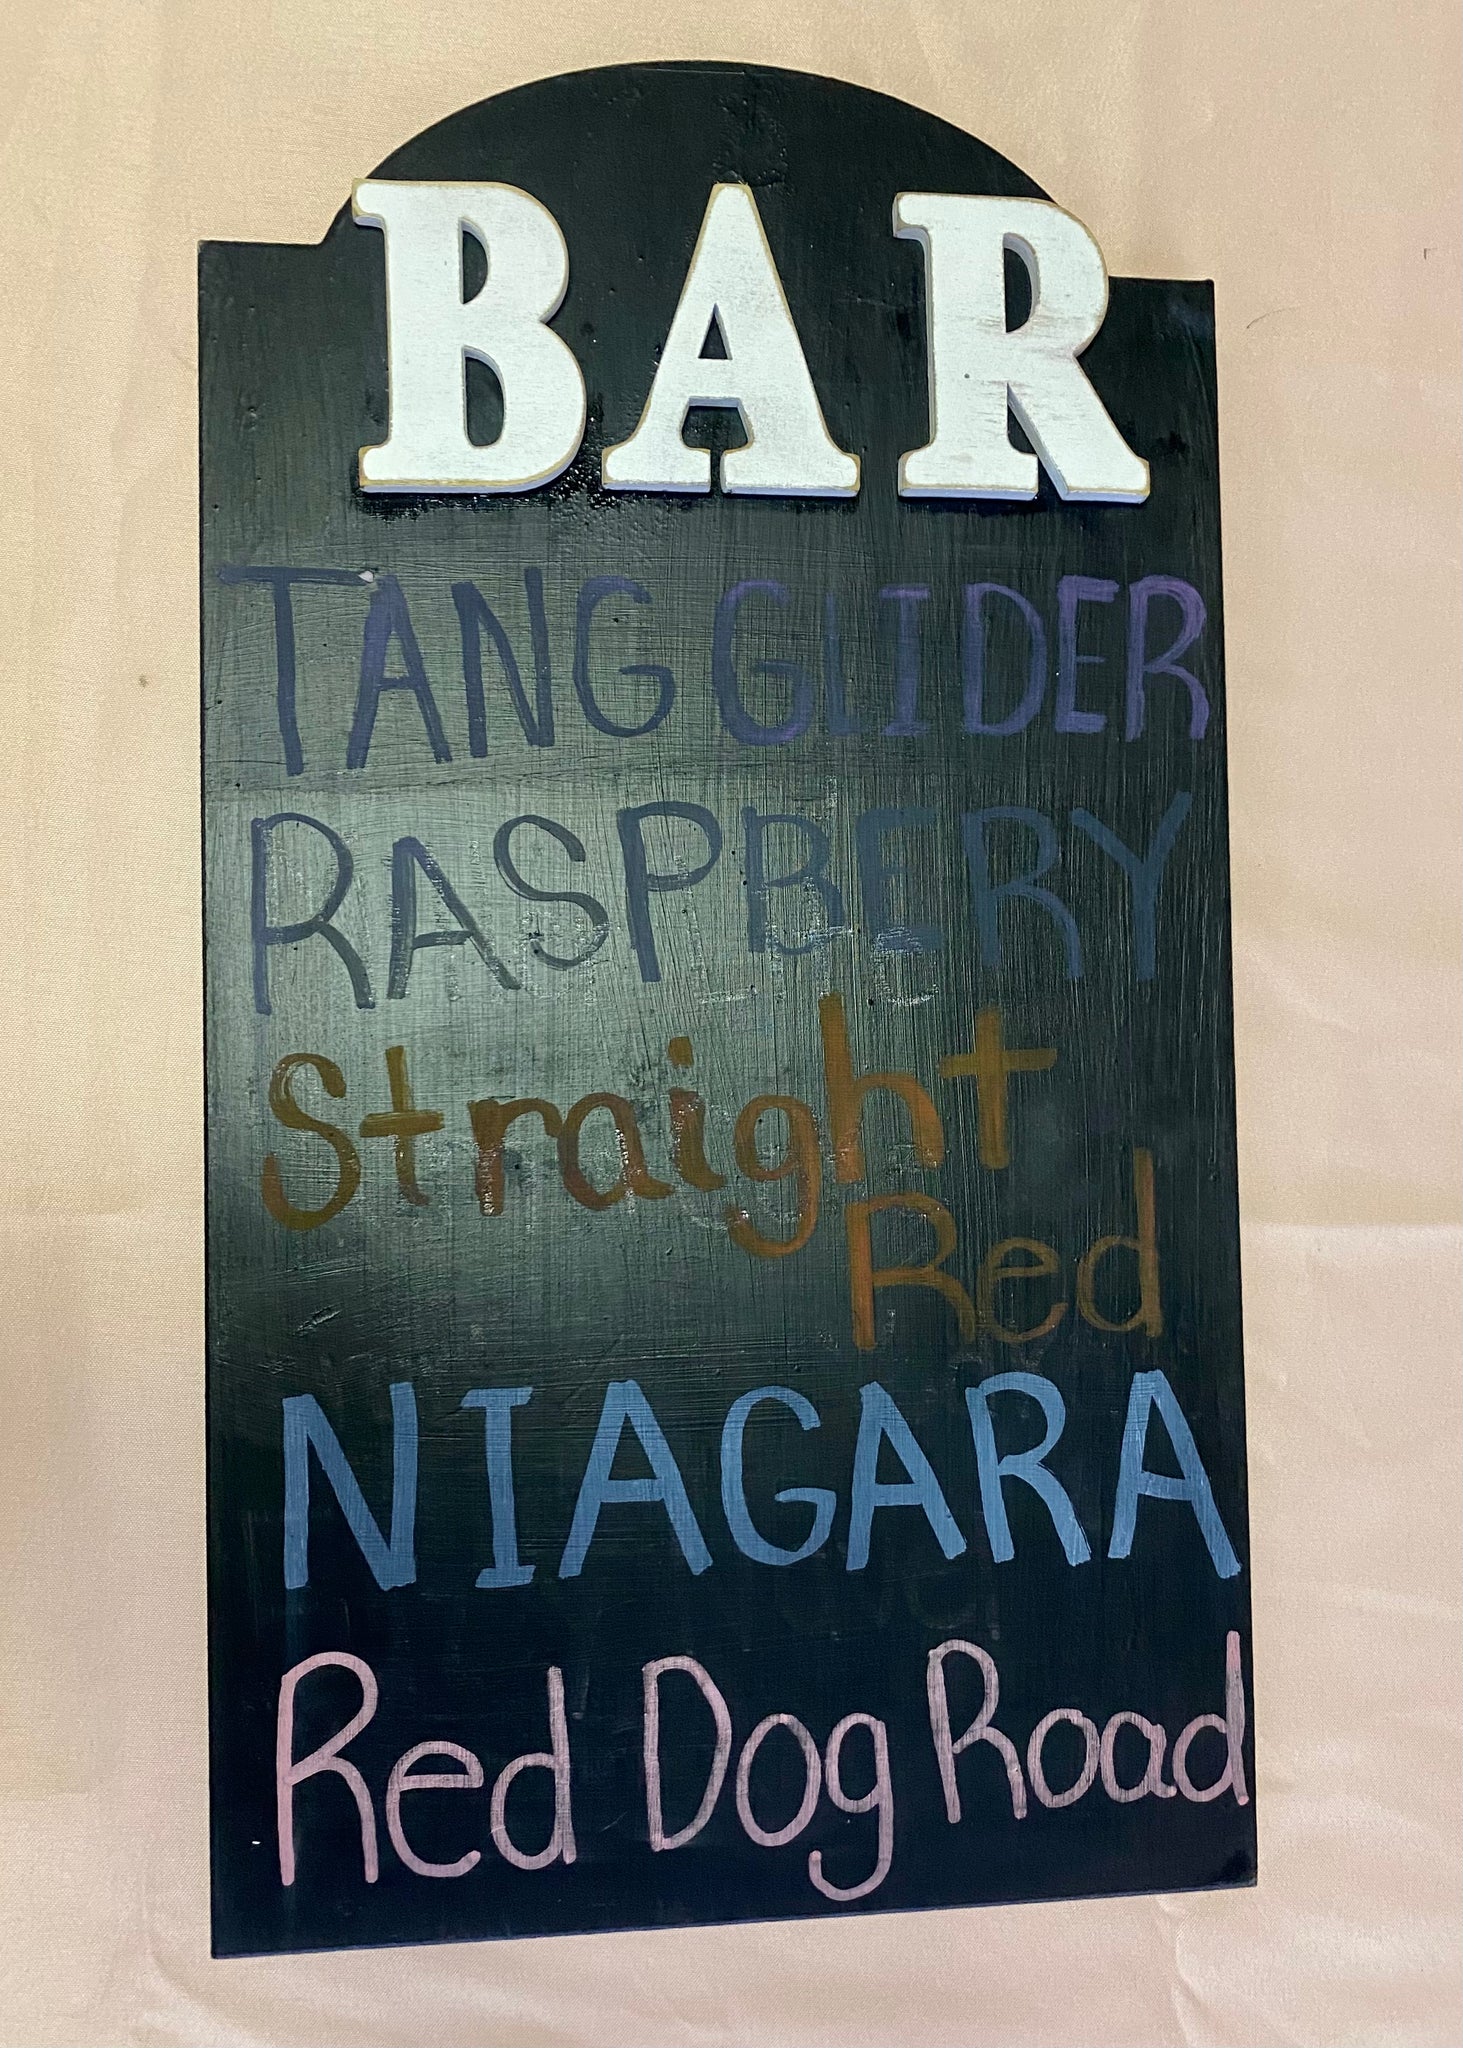 BAR
TANG GLIDER
RASPBERY
Straight
Red
NIAGARA
Red Dog Road